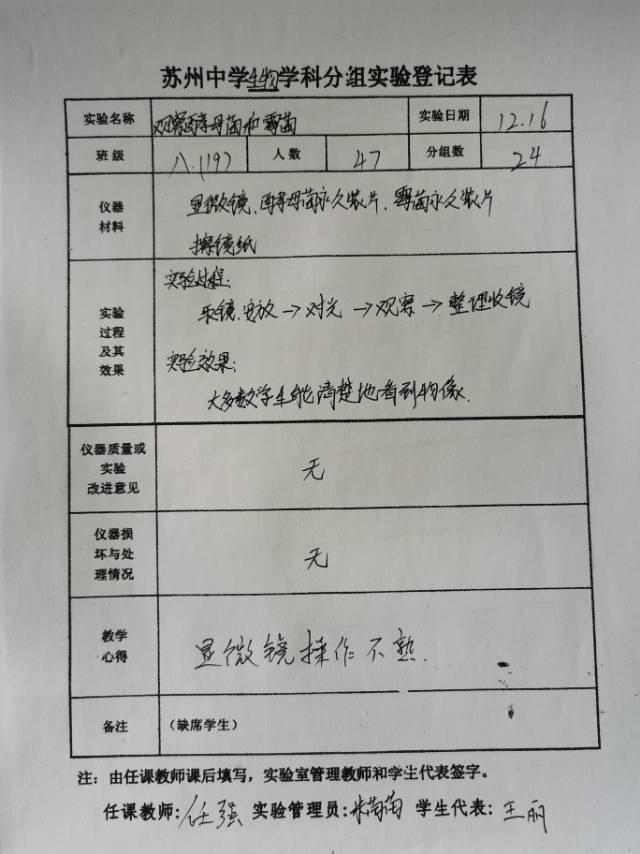 苏州中学生物学科分组实验登记表
实验名称 观察酵母菌和霉菌 实验日期 12.16
班级 八.(19) 人数 47 分组数 24
仪器材料 显微镜、酵母菌永久装片、霉菌永久装片
擦镜纸
实验过程及其效果 实验过程:
取镜、安放→对光→观察→整理收镜
实验效果:
大多数学生能清楚地看到物像.
仪器质量或实验改进意见 无
仪器损坏与处理情况 无
教学心得 显微镜操作不熟.
备注 (缺席学生)
注:由任课教师课后填写,实验室管理教师和学生代表签字。
任课教师:任强 实验管理员: 学生代表:王丽